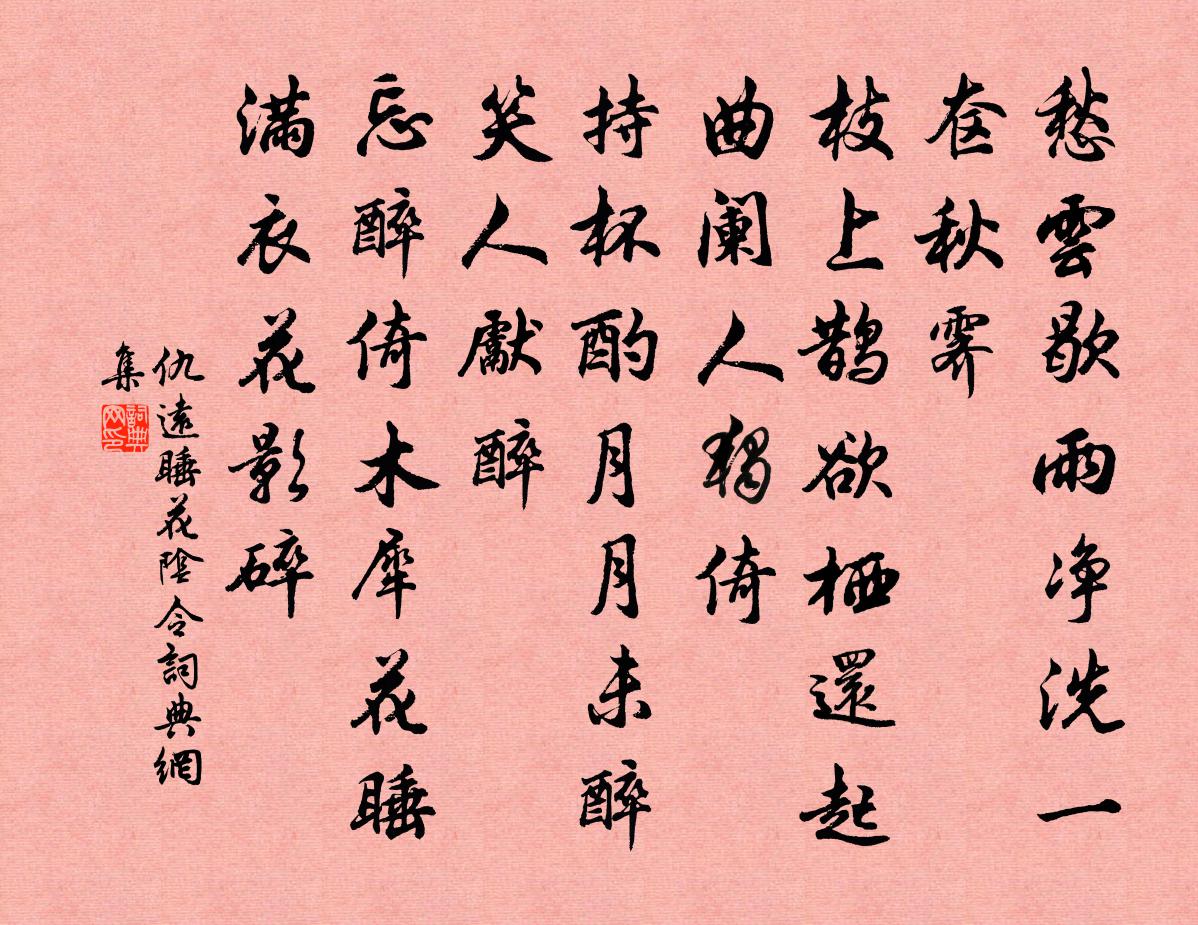 愁雲歇雨净洗一
奁秋霽
枝上鵲欲栖還起
曲阑人獨倚
持杯酌月月未醉
笑人獻醉
忘醉倚木犀花睡
滿衣花影碎
仇遠睡花陰令詞典網
集
詞典
网印